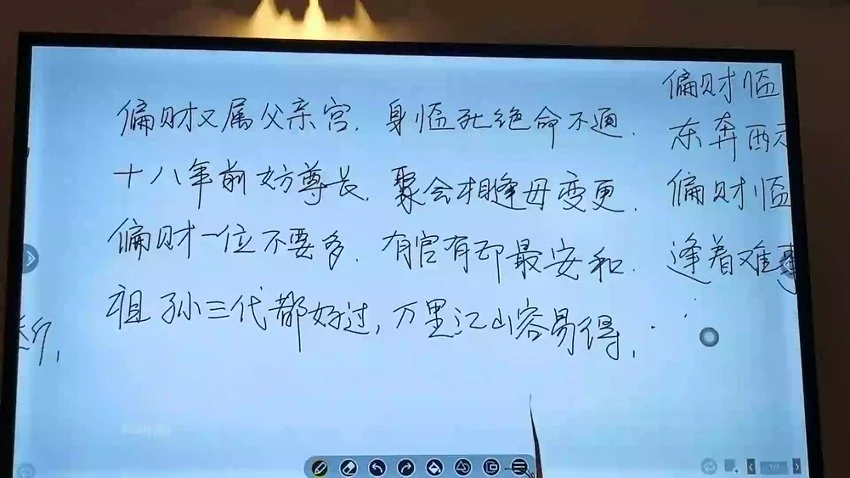 偏财又属父亲宫．身临死绝命不通．
十八年前妨尊长．聚会相逢毋变更．
偏财一位不要多．有官有印最安和．
祖孙三代都好过，万里江山容易得，
偏财临
东奔西
偏财临
逢着难
1/1